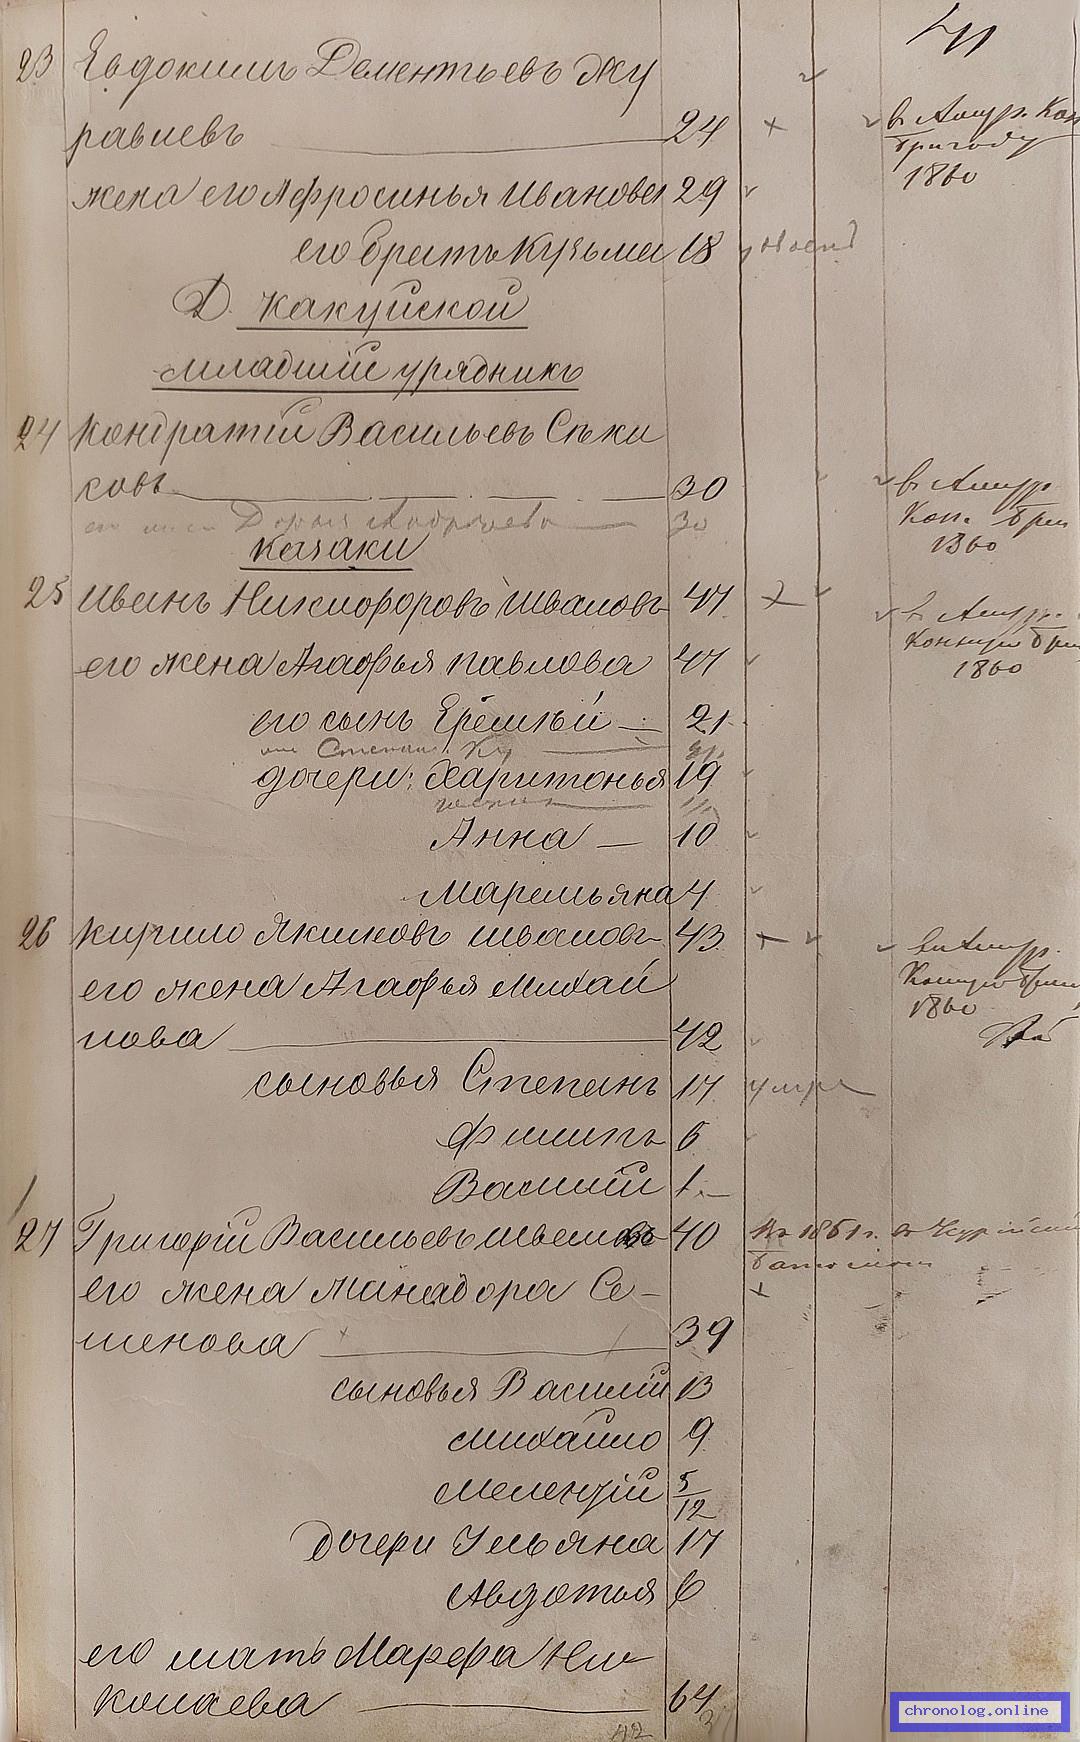 41
23 Евдокимъ Дементьевъ Жу
равлевъ 24 в Амур. Кон
бригаду
1860
жена его Афросинья Иванова 29
его братъ Кузьма 18
Д. Какуйской
младшій урядникъ
24 Кондратій Васильевъ Съки
ковъ 30 в Амур.
Кон. бриг
1860
его жена Дарья 30
казаки
25 Иванъ Никифоровъ Шваловъ 47 в Амур.
Конную бри
1860
его жена Агафья Павлова 47
его сынъ Еремѣй 21
Степани
дочери: Харитонья 19
Анна 10
Маремьяна 4
26 Кирило Якимовъ Шваловъ 43 въ Амур.
Конную бри
1860
его жена Агафья Михай
лова 42
сыновья Степанъ 17 умре
Филипъ 6
Василій 1
27 Григорій Васильевъ Шваловъ 40 въ 1861 г. в
баталіонъ
его жена Минадора Се-
менова 39
сыновья Василій 13
Михайло 9
Мелентій 5/12
дочери Ульяна 17
Авдотья 6
его мать Марфа Ни-
колаева 64
chronolog.online